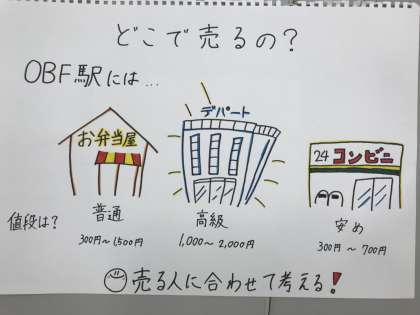 どこで売るの？
OBF駅には…
お弁当屋
デパート
24 コンビニ
値段は？
普通
高級
安め
300円～1,500円
1,000～2,000円
300円～700円
売る人に合わせて考える！